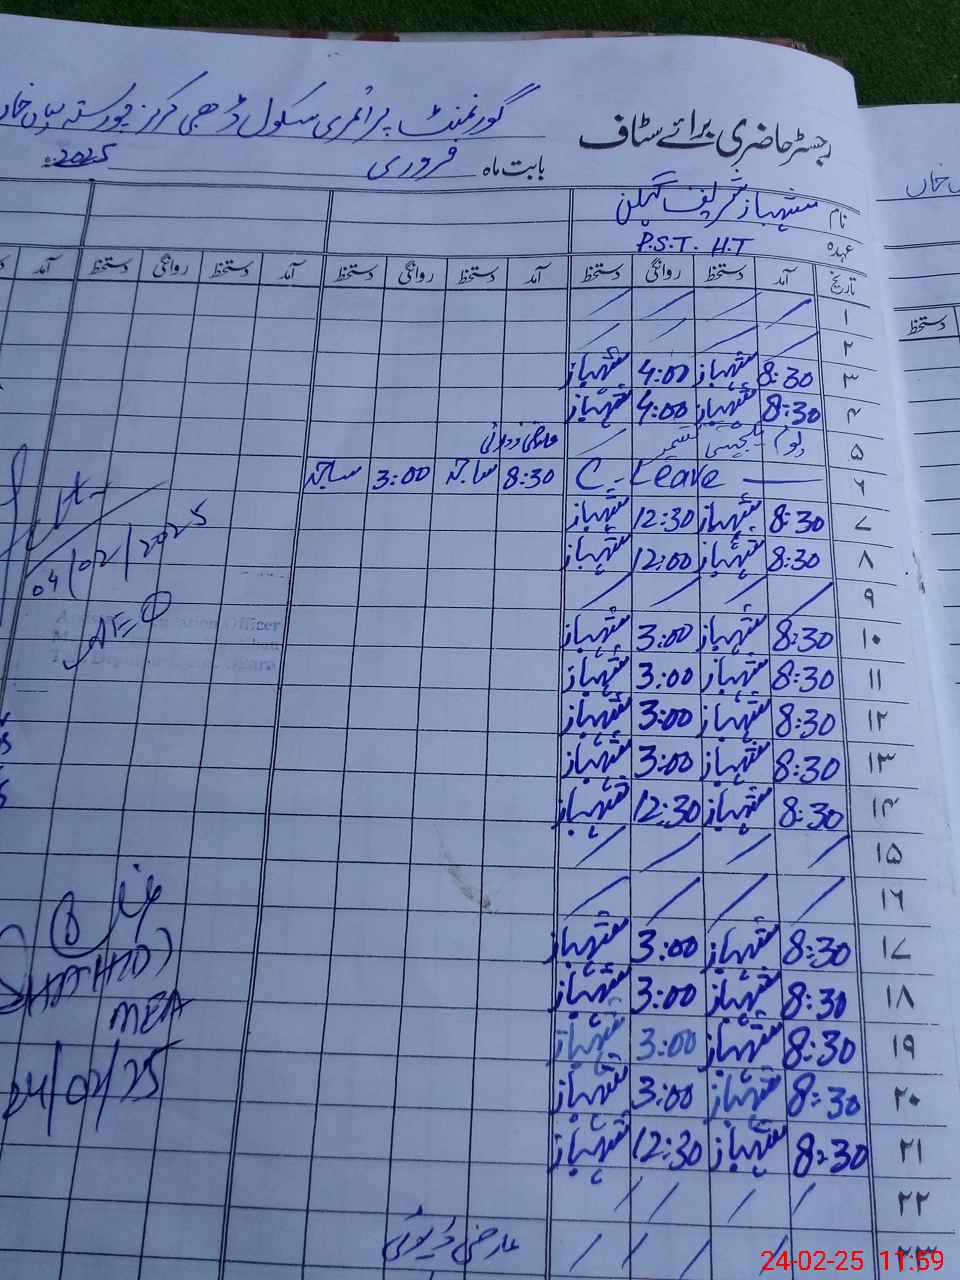 رجسٹر حاضری برائے سٹاف
گورنمنٹ پرائمری سکول
بابت ماہ فروری 2025
نام شہباز شریف
عہدہ P.S.T. H.T
تاریخ آمد دستخط روانگی دستخط آمد دستخط روانگی دستخط آمد دستخط روانگی دستخط آمد
۱
۲
۳ 8:30 شہباز 4:00 شہباز
۴ 8:30 شہباز 4:00 شہباز
۵ یوم یکجہتی کشمیر عارضی ڈیوٹی
۶ C-Leave 8:30 3:00
۷ 8:30 شہباز 12:30 شہباز
۸ 8:30 شہباز 12:00 شہباز
۹
۱۰ 8:30 شہباز 3:00 شہباز
۱۱ 8:30 شہباز 3:00 شہباز
۱۲ 8:30 شہباز 3:00 شہباز
۱۳ 8:30 شہباز 3:00 شہباز
۱۴ 8:30 شہباز 12:30 شہباز
۱۵
۱۶
۱۷ 8:30 شہباز 3:00 شہباز
۱۸ 8:30 شہباز 3:00 شہباز
۱۹ 8:30 شہباز 3:00 شہباز
۲۰ 8:30 شہباز 3:00 شہباز
۲۱ 8:30 شہباز 12:30 شہباز
۲۲
۲۳ عارضی ڈیوٹی
04/02/2025
Officer
MEA
24/02/25
دستخط
خاں
24-02-25 11:59